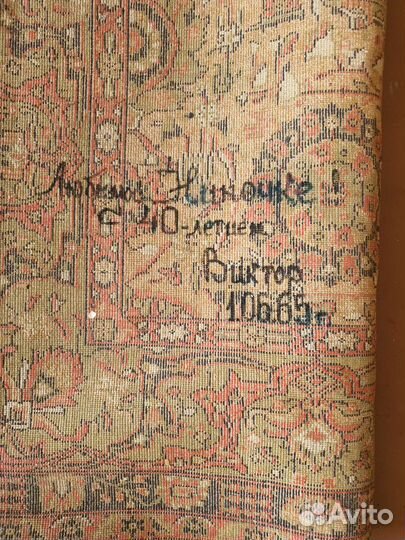 Любимой Ниночке!
С 40-летием
Виктор
10.6.65г.
Avito